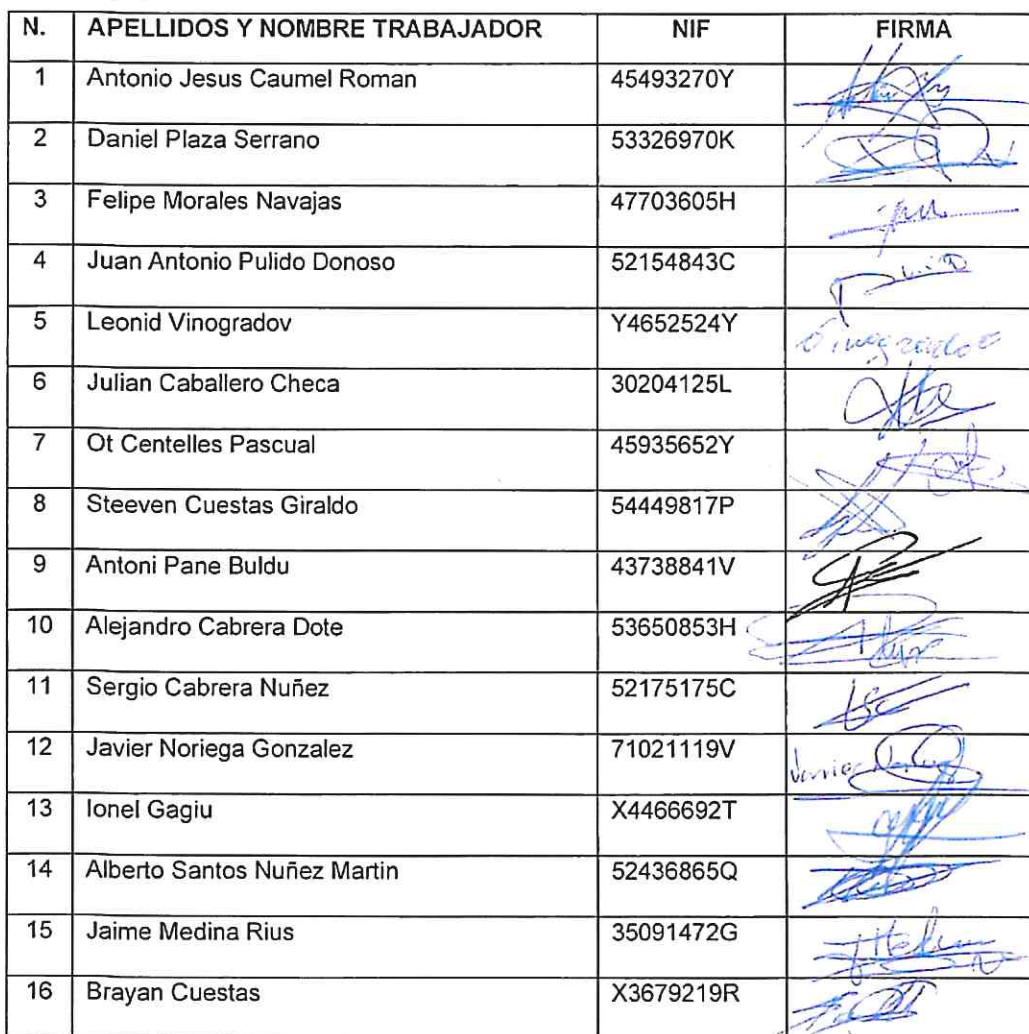 N. APELLIDOS Y NOMBRE TRABAJADOR NIF FIRMA
1 Antonio Jesus Caumel Roman 45493270Y
2 Daniel Plaza Serrano 53326970K
3 Felipe Morales Navajas 47703605H
4 Juan Antonio Pulido Donoso 52154843C
5 Leonid Vinogradov Y4652524Y
6 Julian Caballero Checa 30204125L
7 Ot Centelles Pascual 45935652Y
8 Steeven Cuestas Giraldo 54449817P
9 Antoni Pane Buldu 43738841V
10 Alejandro Cabrera Dote 53650853H
11 Sergio Cabrera Nuñez 52175175C
12 Javier Noriega Gonzalez 71021119V
13 Ionel Gagiu X4466692T
14 Alberto Santos Nuñez Martin 52436865Q
15 Jaime Medina Rius 35091472G
16 Brayan Cuestas X3679219R